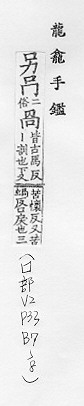 龍龕手鑑
呙冎二俗咼皆古馬反剮也下又
苦懐反又苦緺反戾也三
(口部V2
P33
B7
-8)